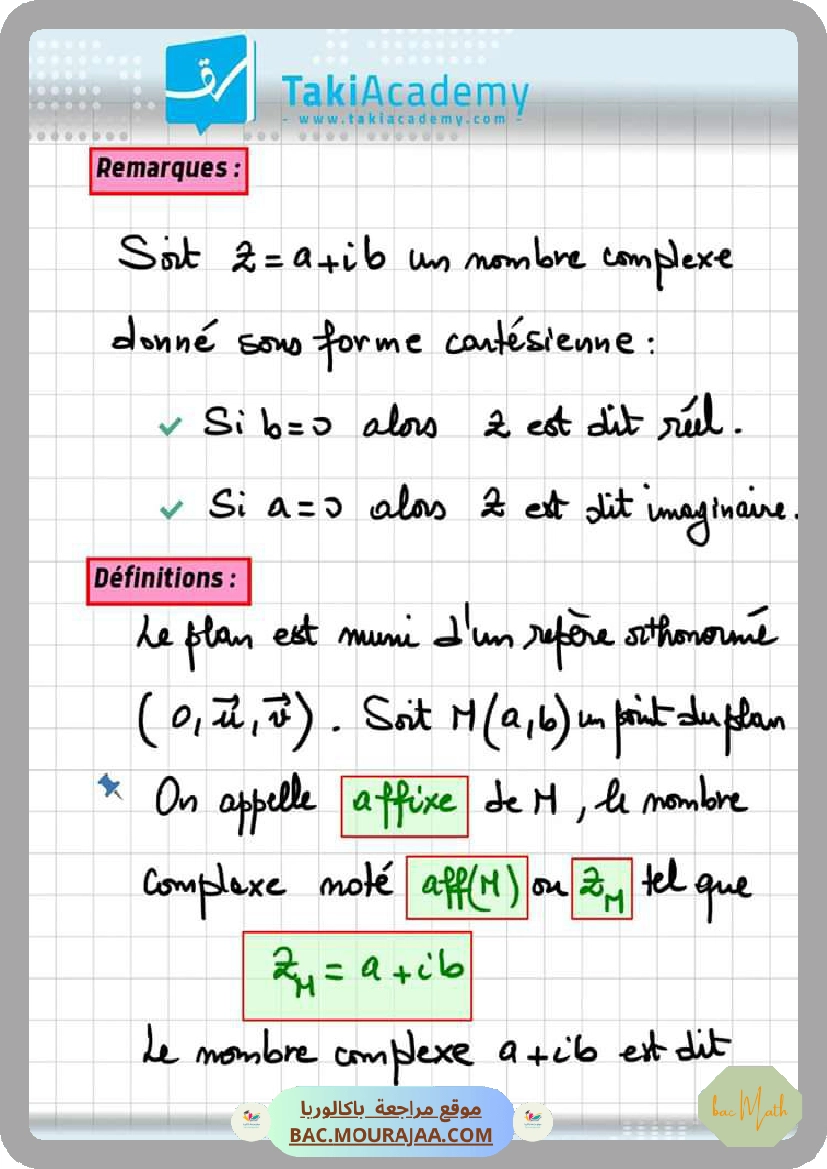 TakiAcademy
- www.takiacademy.com -
Remarques :
Soit z = a + ib un nombre complexe
donné sous forme cartésienne :
✓ Si b = 0 alors z est dit réel.
✓ Si a = 0 alors z est dit imaginaire.
Définitions :
Le plan est muni d'un repère orthonormé
(O, u⃗, v⃗). Soit M(a, b) un point du plan
On appelle affixe de M, le nombre
complexe noté aff(M) ou z_M tel que
z_M = a + ib
Le nombre complexe a + ib est dit
موقع مراجعة باكالوريا
BAC.MOURAJAA.COM
bac Math